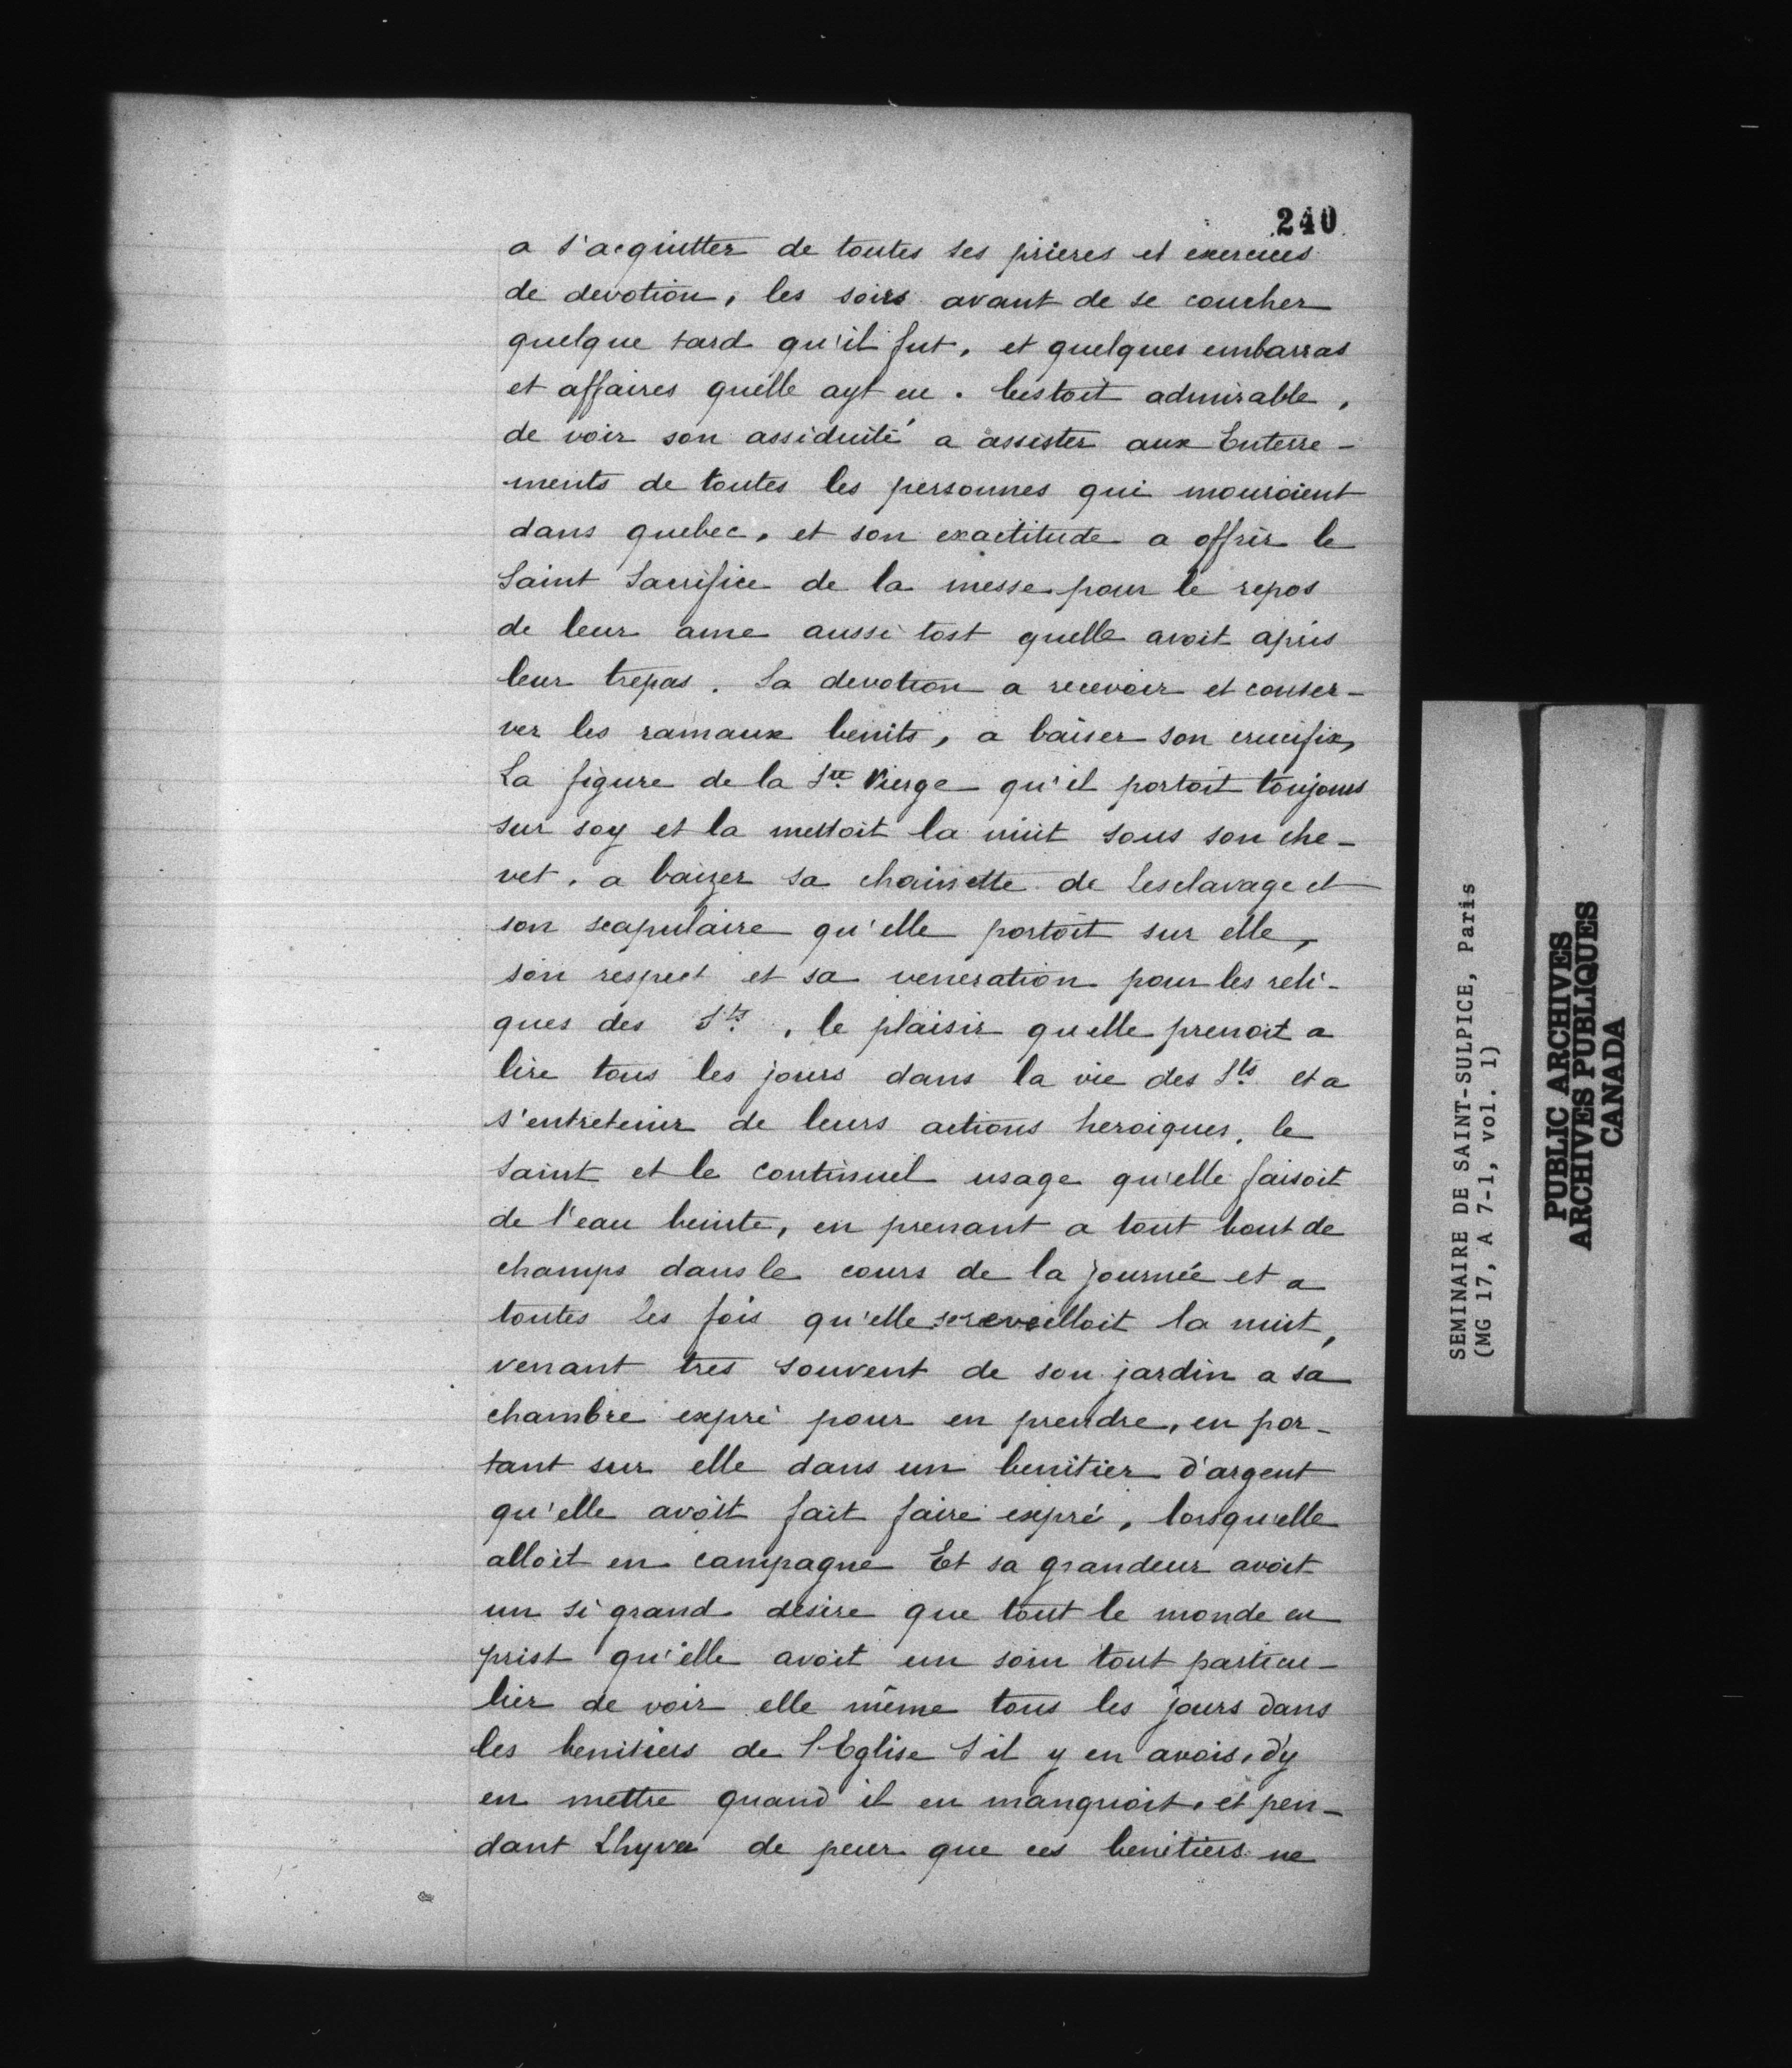 240
a s'acquitter de toutes ses prieres et exercices
de devotion, les soirs avant de se coucher
quelque tard qu'il fut, et quelques embarras
et affaires quelle ayt eu. C'estoit admirable,
de voir son assiduité a assister aux Enterre-
ments de toutes les personnes qui mouroient
dans quebec, et son exactitude a offrir le
Saint Sacrifice de la messe pour le repos
de leur ame aussi tost quelle avoit apris
leur trepas. Sa devotion a recevoir et conser-
ver les ramaux benits, a baiser son crucifix,
La figure de la Ste Vierge qu'il portoit toujours
sur soy et la mettoit la nuit sous son che-
vet, a baizer sa chainette de Lesclavage et
son scapulaire qu'elle portoit sur elle,
son respect et sa veneration pour les reli-
ques des Sts, le plaisir quelle prenoit a
lire tous les jours dans la vie des Sts et a
s'entretenir de leurs actions heroiques, le
saint et le continuel usage qu'elle faisoit
de l'eau beniste, en prenant a tout bout de
champs dans le cours de la journée et a
toutes les fois qu'elle sereveilloit la nuit,
venant tres souvent de son jardin a sa
chambre expré pour en prendre, en por-
tant sur elle dans un benitier d'argent
qu'elle avoit fait faire expré, lorsqu'elle
alloit en campagne Et sa grandeur avoit
un si grand desire que tout le monde en
prist qu'elle avoit un soin tout particu-
lier de voir elle même tous les jours dans
les benitiers de l'Eglise s'il y en avois, d'y
en mettre quand il en manquoit, et pen-
dant Lhyver de peur que ces benitiers ne
SEMINAIRE DE SAINT-SULPICE, Paris
(MG 17, A 7-1, vol. 1)
PUBLIC ARCHIVES
ARCHIVES PUBLIQUES
CANADA